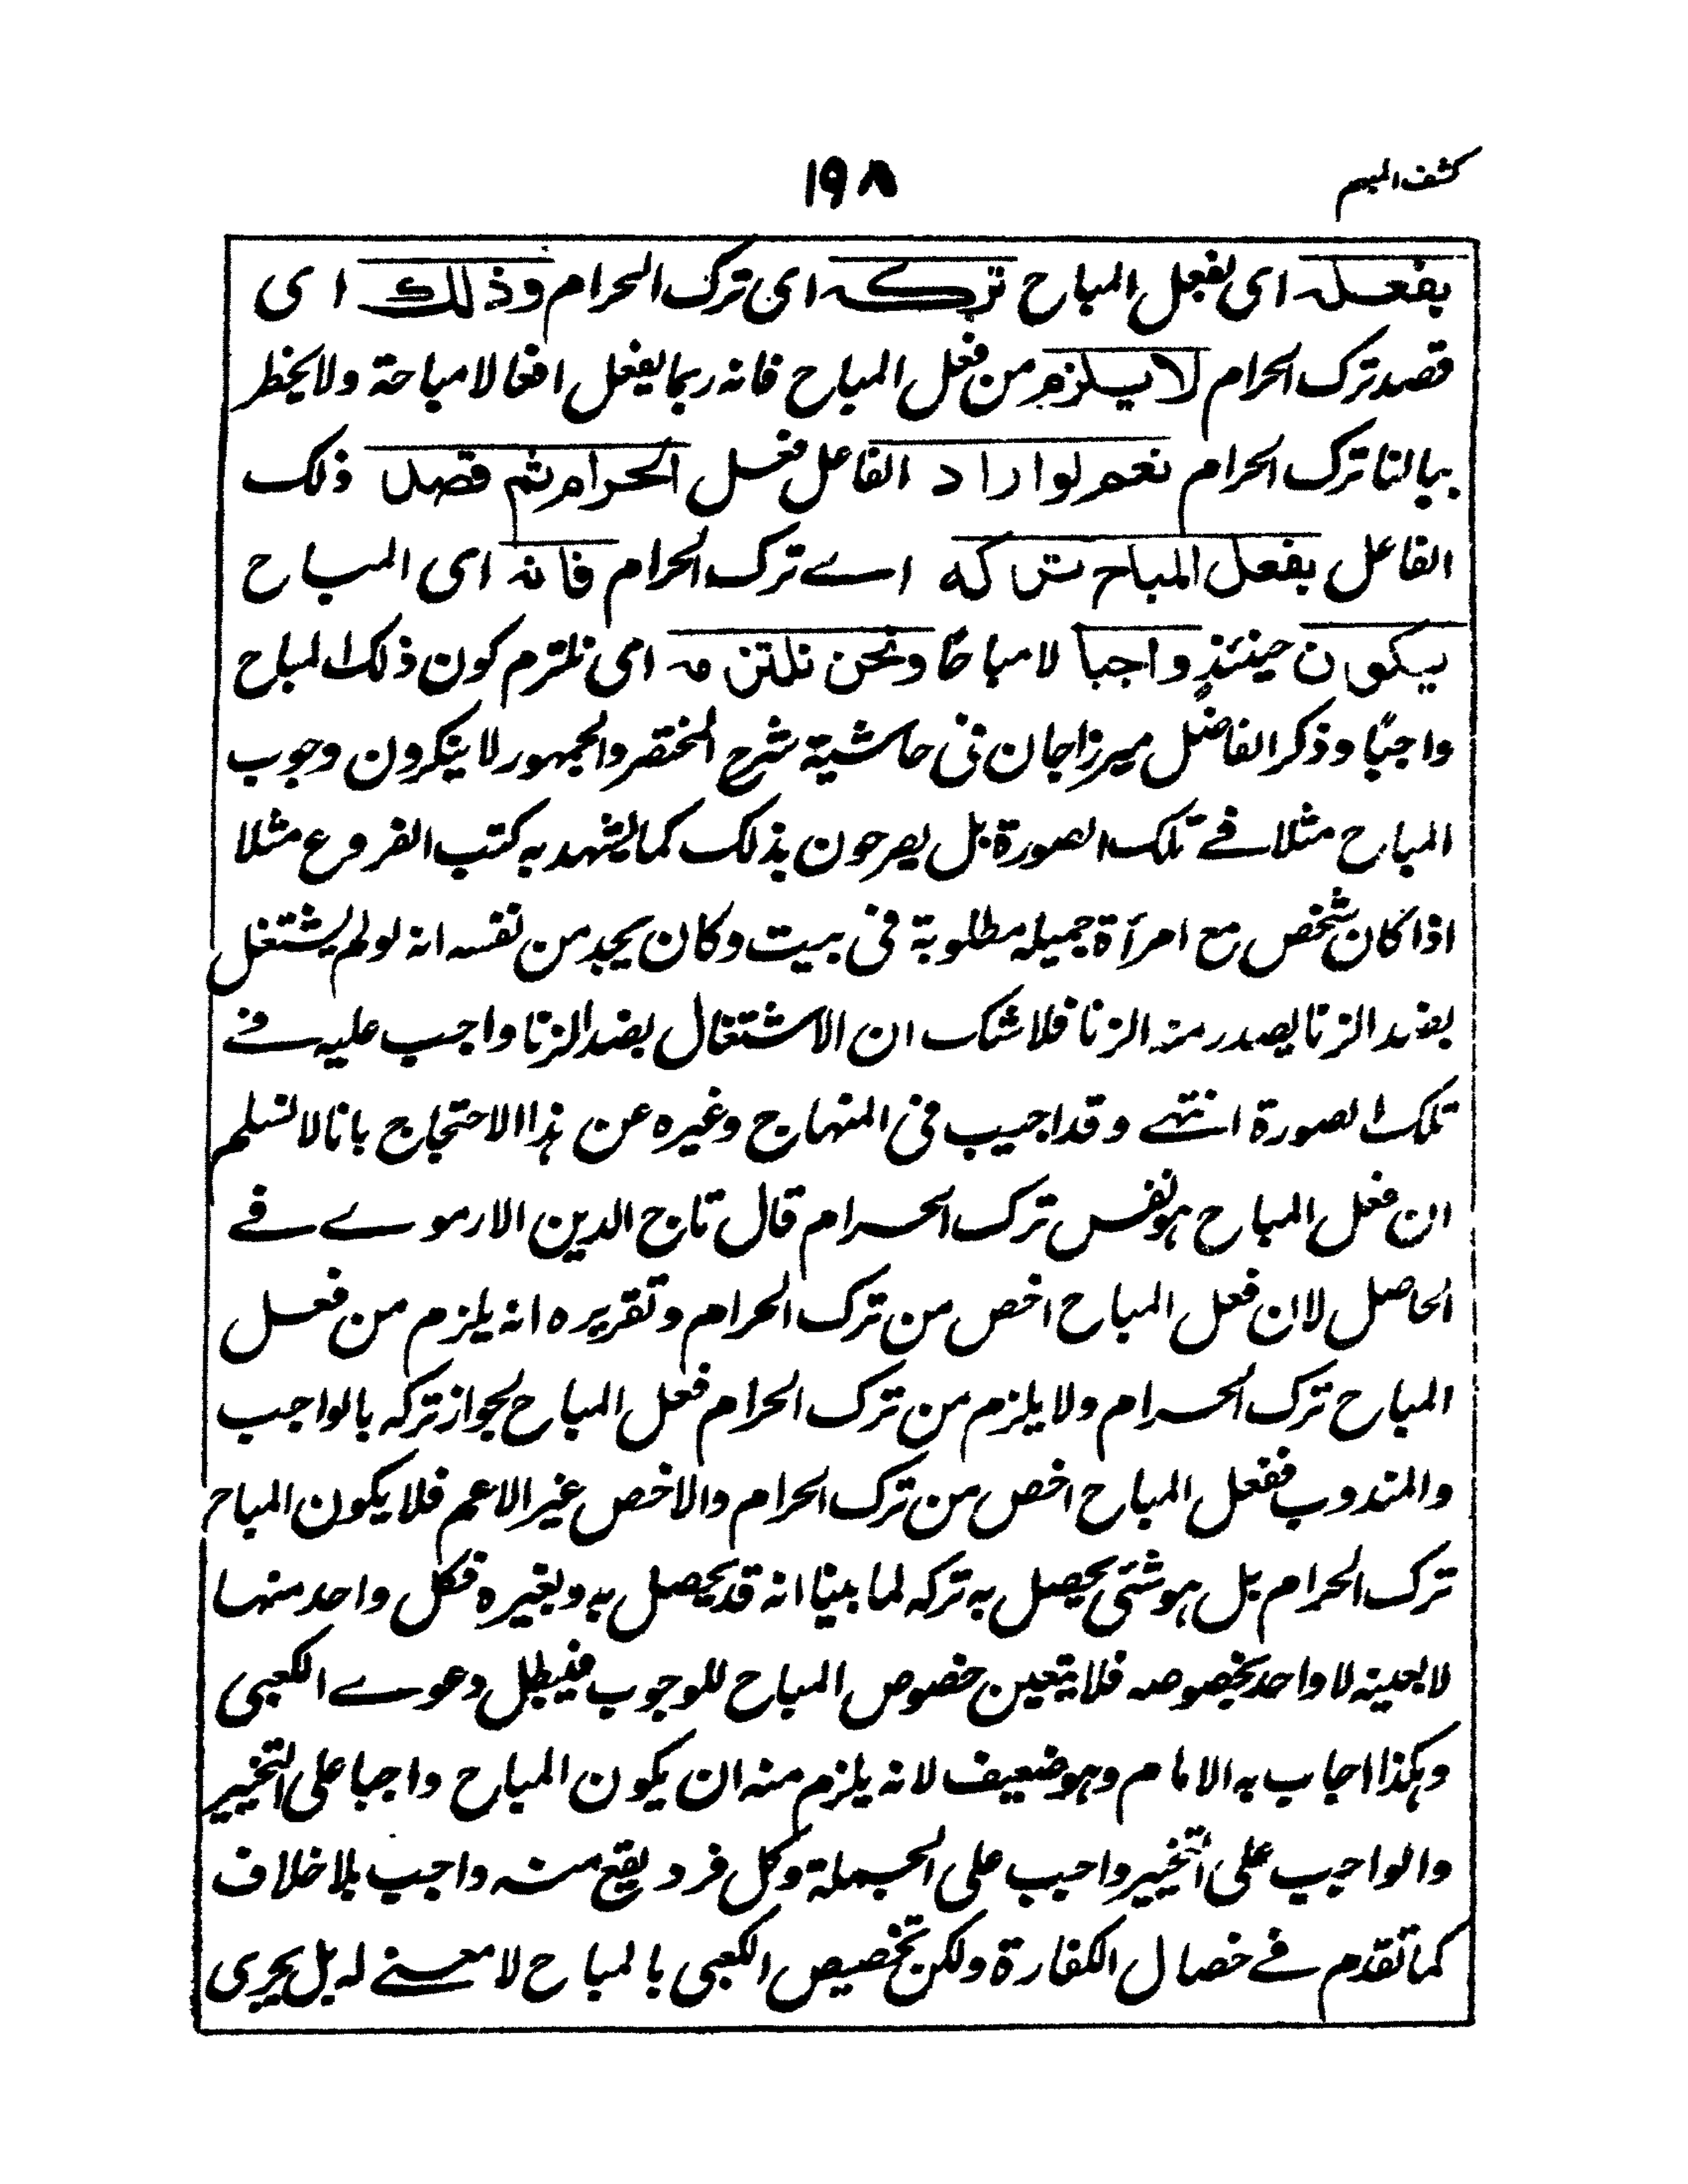 كشف المبهم
١٩٨
بفعله اى بفعل المباح تركه اى ترك الحرام وذلك اى
قصد ترك الحرام لا يلزم من فعل المباح فانه ربما يفعل افعالا مباحة ولا يخطر
ببالنا ترك الحرام نعم لو اراد الفاعل فعل الحرام ثم قصد ذلك
الفاعل بفعل المباح تركه اے ترك الحرام فانه اى المباح
يكون حينئذٍ واجبا لا مباحًا ونحن نلتزمه اى نلتزم كون ذلك المباح
واجبًا وذكر الفاضل ميرزاجان فى حاشية شرح المختصر والجمهور لا ينكرون وجوب
المباح مثلا فے تلك الصورة بل يصرحون بذلك كما يشهد به كتب الفروع مثلا
اذا كان شخص مع امرأة جميله مطلوبة فى بيت وكان يجد من نفسه انه لو لم يشتغل
بضد الزنا يصدر منه الزنا فلا شك ان الاشتغال بضد الزنا واجب عليه فے
تلك الصورة انتهے وقد اجيب فى المنهاج وغيره عن هذا الاحتجاج بانا لا نسلم
ان فعل المباح هو نفس ترك الحرام قال تاج الدين الارموے فے
الحاصل لاان فعل المباح اخص من ترك الحرام وتقريره انه يلزم من فعل
المباح ترك الحرام ولا يلزم من ترك الحرام فعل المباح لجواز تركه بالواجب
والمندوب ففعل المباح اخص من ترك الحرام والاخص غير الاعم فلا يكون المباح
ترك الحرام بل هو شئى يحصل به تركه لما بينا انه قد يحصل به وبغيره فكل واحد منها
لا بعينه لا واحد بخصوصه فلا يتعين خصوص المباح للوجوب فيبطل دعوے الكعبى
وهكذا اجاب به الامام وهو ضعيف لانه يلزم منه ان يكون المباح واجبا على التخيير
والواجب على التخيير واجب على الجملة وكل فرد يقع منه واجب بلا خلاف
كما تقدم فے خصال الكفارة ولكن تخصيص الكعبى بالمباح لا معنے له بل يجرى